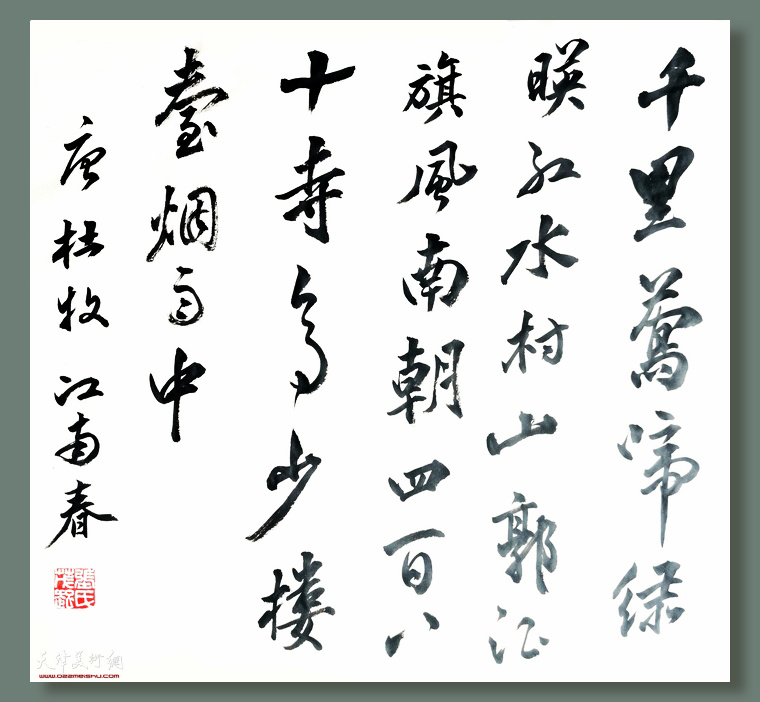 千里莺啼绿
暎红水村山郭酒
旗风南朝四百八
十寺多少楼
臺烟雨中
唐杜牧江南春
天津美术网
www.022meishu.com